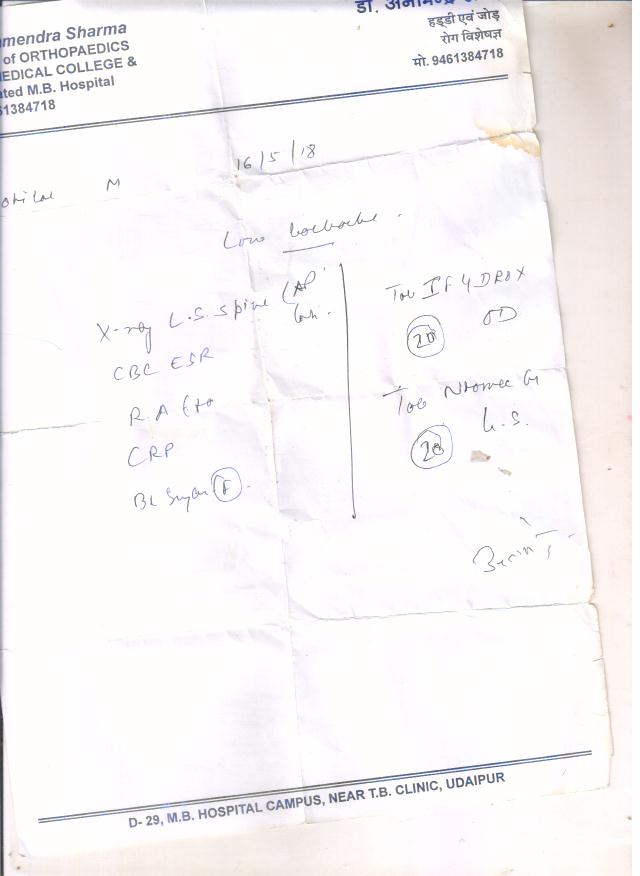 mendra Sharma
of ORTHOPAEDICS
EDICAL COLLEGE &
ted M.B. Hospital
61384718
डॉ.
हड्डी एवं जोड़
रोग विशेषज्ञ
मो. 9461384718
16/5/18
M
Low backache.
X-ray L.S. Spine (AP
CBC ESR
R.A
CRP
Bl Sugar (F).
Tab
20 OD
Tab
20 h.s.
D- 29, M.B. HOSPITAL CAMPUS, NEAR T.B. CLINIC, UDAIPUR